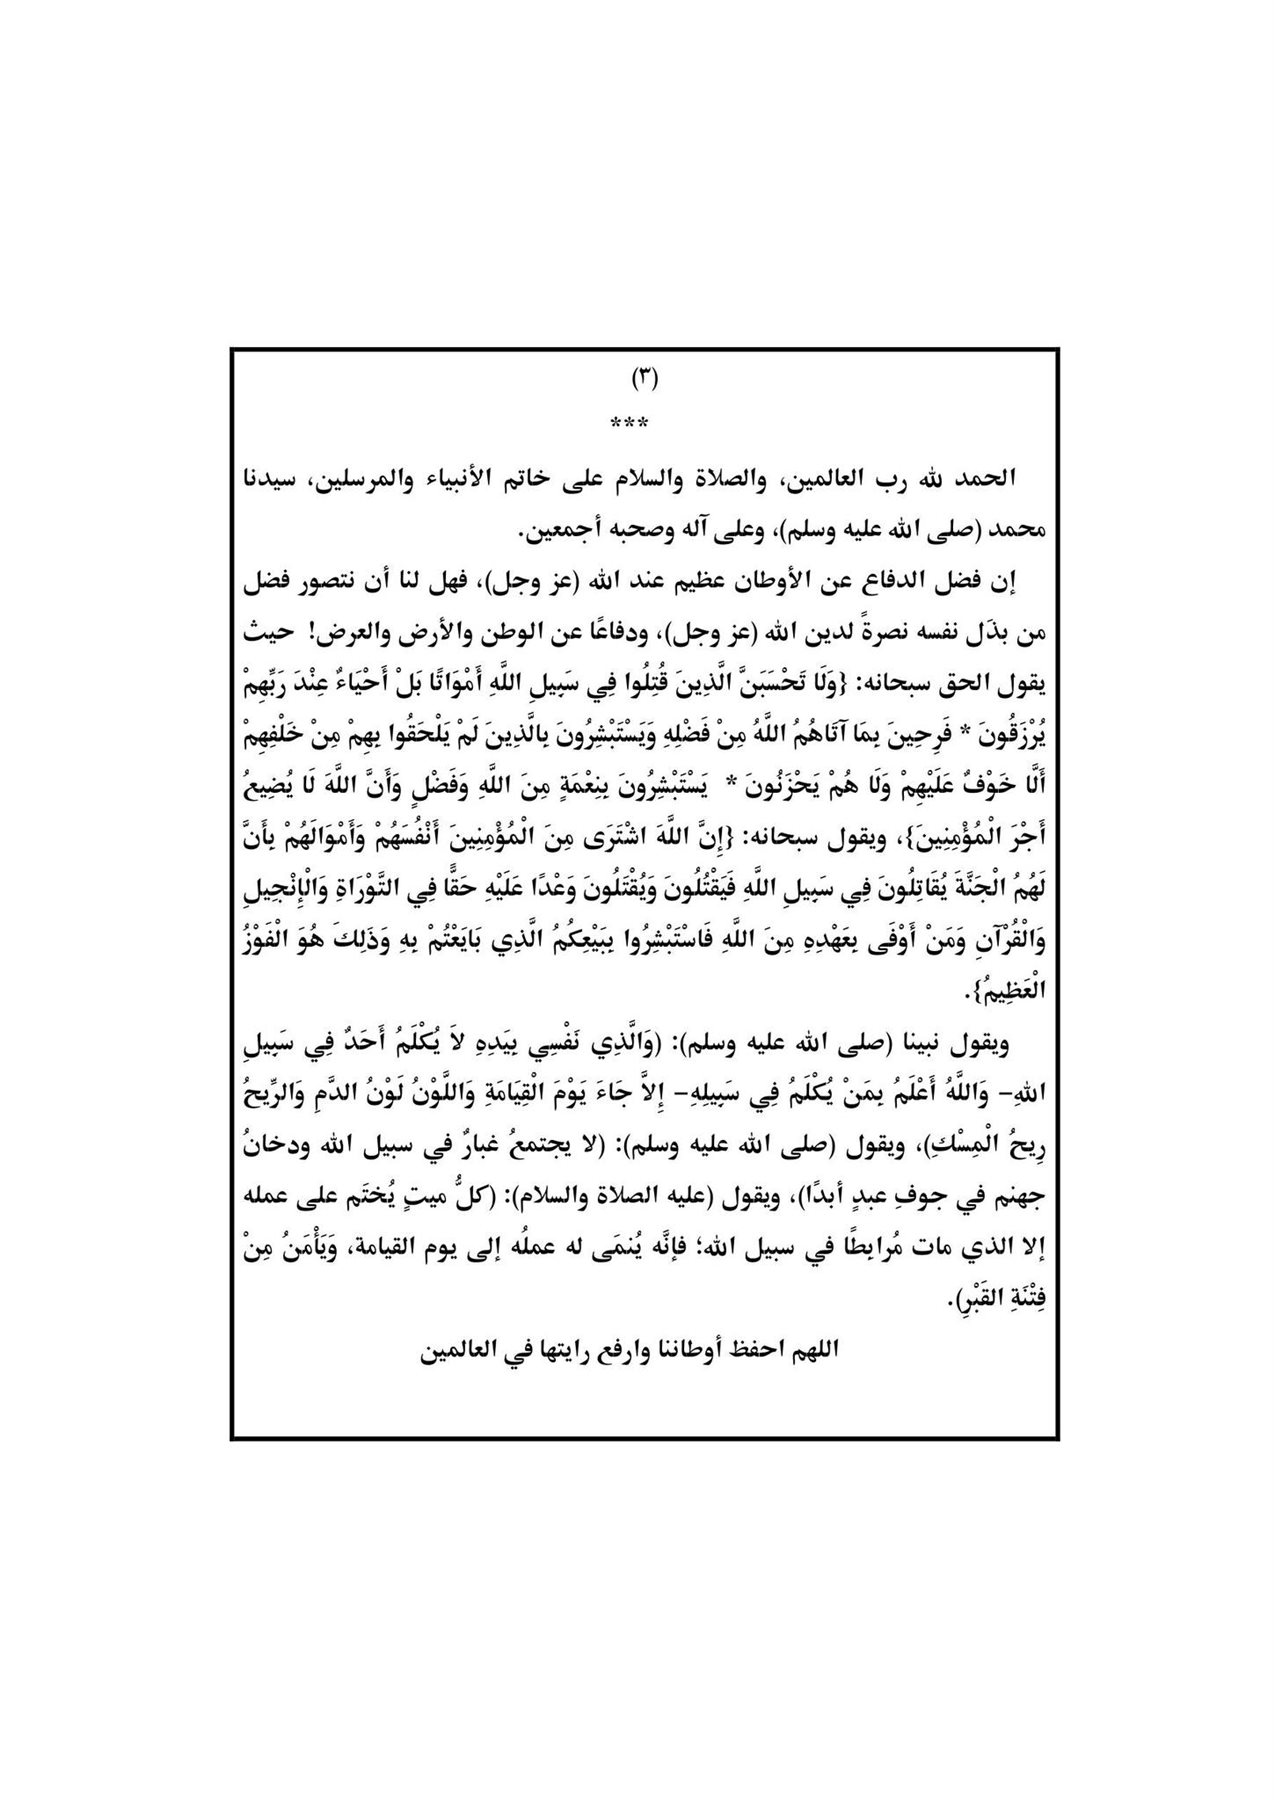 (٣)
***
الحمد لله رب العالمين، والصلاة والسلام على خاتم الأنبياء والمرسلين، سيدنا
محمد (صلى الله عليه وسلم)، وعلى آله وصحبه أجمعين.
إن فضل الدفاع عن الأوطان عظيم عند الله (عز وجل)، فهل لنا أن نتصور فضل
من بذَل نفسه نصرةً لدين الله (عز وجل)، ودفاعًا عن الوطن والأرض والعرض! حيث
يقول الحق سبحانه: {وَلَا تَحْسَبَنَّ الَّذِينَ قُتِلُوا فِي سَبِيلِ اللَّهِ أَمْوَاتًا بَلْ أَحْيَاءٌ عِنْدَ رَبِّهِمْ
يُرْزَقُونَ * فَرِحِينَ بِمَا آتَاهُمُ اللَّهُ مِنْ فَضْلِهِ وَيَسْتَبْشِرُونَ بِالَّذِينَ لَمْ يَلْحَقُوا بِهِمْ مِنْ خَلْفِهِمْ
أَلَّا خَوْفٌ عَلَيْهِمْ وَلَا هُمْ يَحْزَنُونَ * يَسْتَبْشِرُونَ بِنِعْمَةٍ مِنَ اللَّهِ وَفَضْلٍ وَأَنَّ اللَّهَ لَا يُضِيعُ
أَجْرَ الْمُؤْمِنِينَ}، ويقول سبحانه: {إِنَّ اللَّهَ اشْتَرَى مِنَ الْمُؤْمِنِينَ أَنْفُسَهُمْ وَأَمْوَالَهُمْ بِأَنَّ
لَهُمُ الْجَنَّةَ يُقَاتِلُونَ فِي سَبِيلِ اللَّهِ فَيَقْتُلُونَ وَيُقْتَلُونَ وَعْدًا عَلَيْهِ حَقًّا فِي التَّوْرَاةِ وَالْإِنْجِيلِ
وَالْقُرْآنِ وَمَنْ أَوْفَى بِعَهْدِهِ مِنَ اللَّهِ فَاسْتَبْشِرُوا بِبَيْعِكُمُ الَّذِي بَايَعْتُمْ بِهِ وَذَلِكَ هُوَ الْفَوْزُ
الْعَظِيمُ}.
ويقول نبينا (صلى الله عليه وسلم): (وَالَّذِي نَفْسِي بِيَدِهِ لاَ يُكْلَمُ أَحَدٌ فِي سَبِيلِ
اللهِ– وَاللَّهُ أَعْلَمُ بِمَنْ يُكْلَمُ فِي سَبِيلِهِ– إِلاَّ جَاءَ يَوْمَ الْقِيَامَةِ وَاللَّوْنُ لَوْنُ الدَّمِ وَالرِّيحُ
رِيحُ الْمِسْكِ)، ويقول (صلى الله عليه وسلم): (لا يجتمعُ غبارٌ في سبيل الله ودخانُ
جهنم في جوفِ عبدٍ أبدًا)، ويقول (عليه الصلاة والسلام): (كلُّ ميتٍ يُختَم على عمله
إلا الذي مات مُرابِطًا في سبيل الله؛ فإنَّه يُنمَى له عملُه إلى يوم القيامة، وَيَأْمَنُ مِنْ
فِتْنَةِ القَبْرِ).
اللهم احفظ أوطاننا وارفع رايتها في العالمين